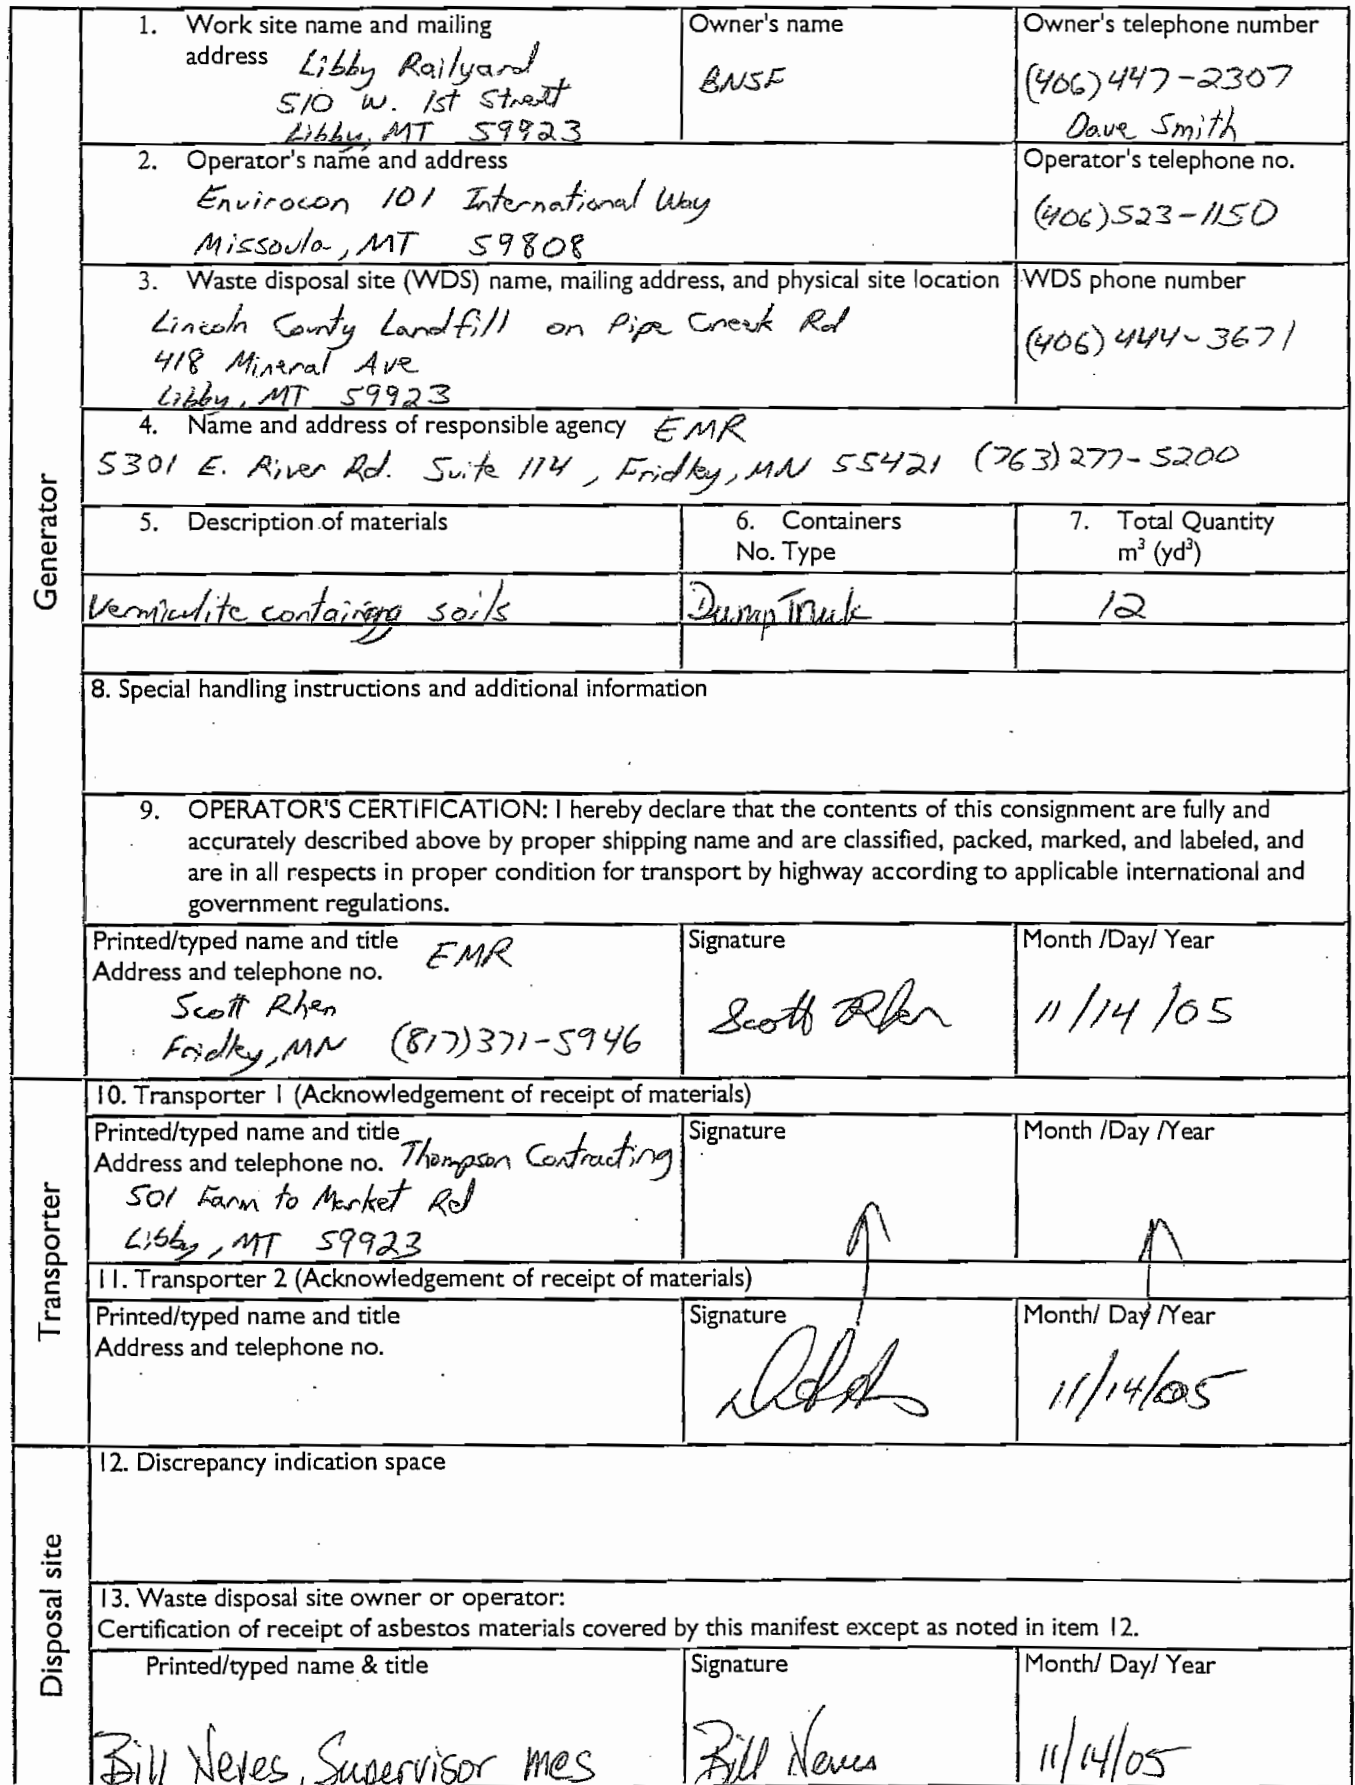 Generator
1. Work site name and mailing address
Libby Railyard
510 W. 1st Street
Libby, MT 59923
Owner's name
BNSF
Owner's telephone number
(406) 447-2307
Dave Smith
2. Operator's name and address
Envirocon 101 International Way
Missoula, MT 59808
Operator's telephone no.
(406) 523-1150
3. Waste disposal site (WDS) name, mailing address, and physical site location
Lincoln County Landfill on Pipe Creek Rd
418 Mineral Ave
Libby, MT 59923
WDS phone number
(406) 444-3671
4. Name and address of responsible agency EMR
5301 E. River Rd. Suite 114, Fridley, MN 55421 (763) 277-5200
5. Description of materials
6. Containers
No. Type
7. Total Quantity
m³ (yd³)
Vermiculite containing soils
Dump Truck
12
8. Special handling instructions and additional information
9. OPERATOR'S CERTIFICATION: I hereby declare that the contents of this consignment are fully and
accurately described above by proper shipping name and are classified, packed, marked, and labeled, and
are in all respects in proper condition for transport by highway according to applicable international and
government regulations.
Printed/typed name and title
Address and telephone no.
EMR
Scott Rhen
Fridley, MN (817) 371-5946
Signature
Scott Rhen
Month /Day/ Year
11/14/05
Transporter
10. Transporter 1 (Acknowledgement of receipt of materials)
Printed/typed name and title
Address and telephone no. Thompson Contracting
501 Farm to Market Rd
Libby, MT 59923
Signature
Month /Day /Year
11. Transporter 2 (Acknowledgement of receipt of materials)
Printed/typed name and title
Address and telephone no.
Signature
Month/ Day /Year
11/14/05
Disposal site
12. Discrepancy indication space
13. Waste disposal site owner or operator:
Certification of receipt of asbestos materials covered by this manifest except as noted in item 12.
Printed/typed name & title
Bill Neves, Supervisor mes
Signature
Bill Neves
Month/ Day/ Year
11/14/05